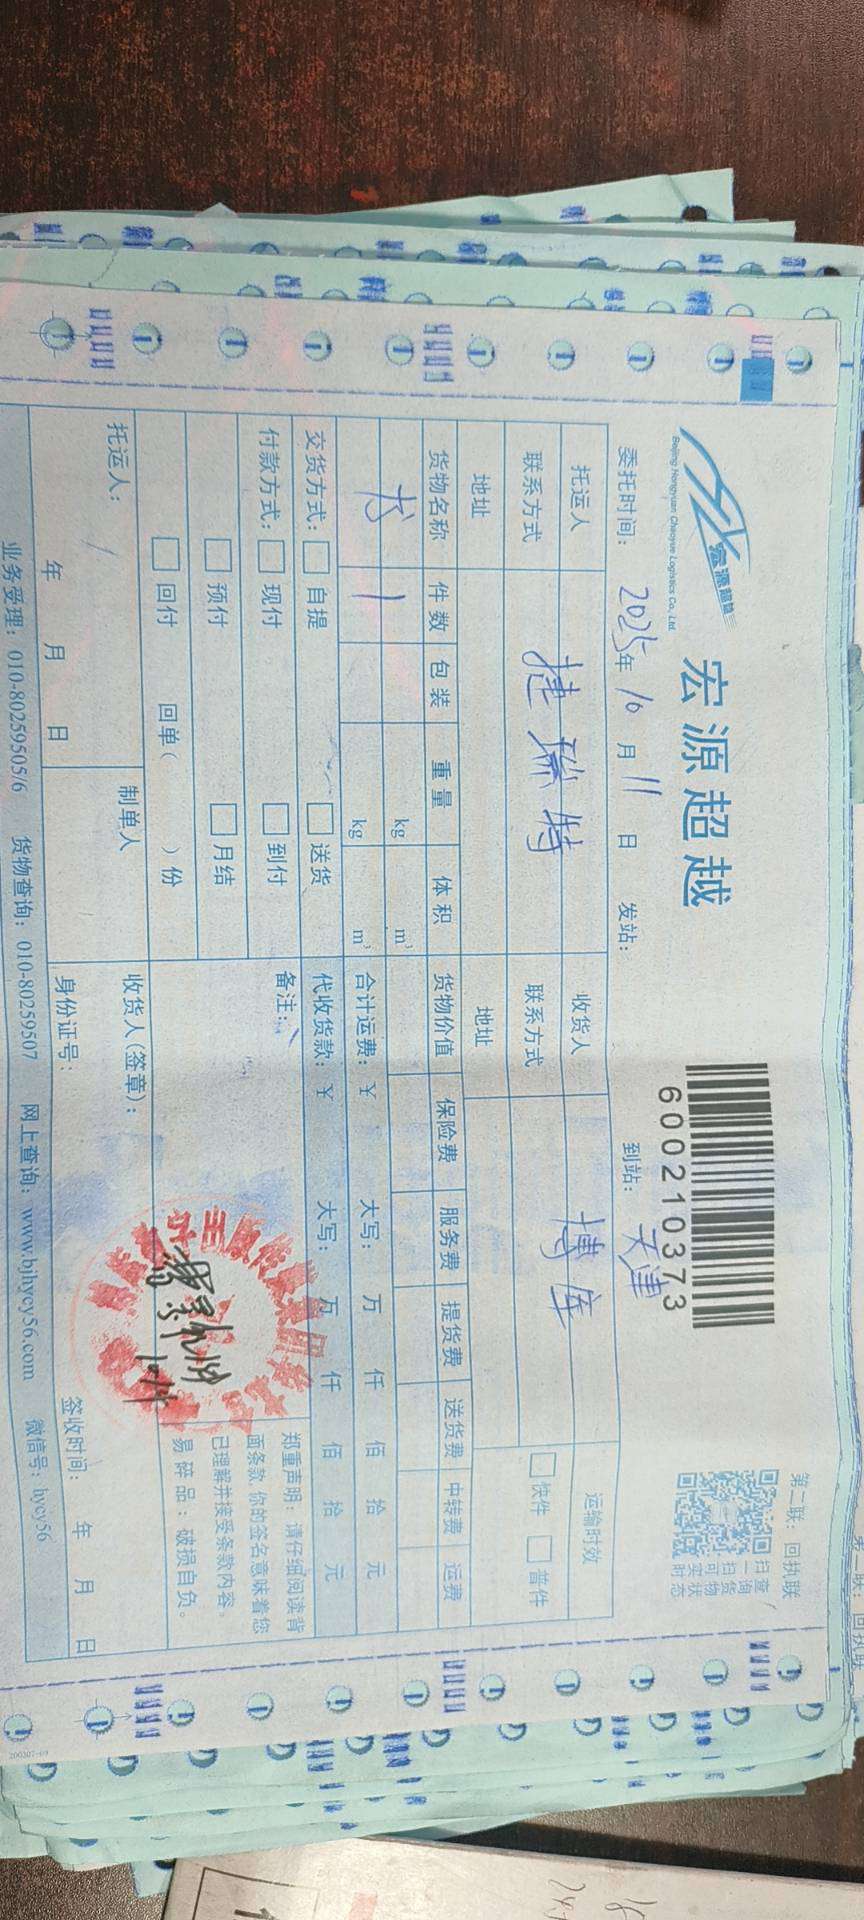 第二联：回执联
宏源超越
Beijing Hongyuan Chaoyue Logistics Co., Ltd.
宏源超越
600210373
扫一扫可实时
查询货物状态
委托时间：2025年10月11日 发站： 到站：天津
托运人 捷瑞特 收货人 博库 运输时效
联系方式 联系方式 快件 普件
地址 地址
货物名称 件数 包装 重量 体积 货物价值 保险费 服务费 提货费 送货费 中转费 运费
书 1 kg m³
kg m³ 合计运费：¥ 大写： 万 仟 佰 拾 元
交货方式： 自提 送货 代收货款：¥ 大写： 万 仟 佰 拾 元
付款方式： 现付 到付 备注：
预付 月结
回付 回单（ ）份
郑重声明：请仔细阅读背
面条款，你的签名意味着您
已理解并接受条款内容。
易碎品：破损自负。
托运人： 制单人 收货人（签章）：
年 月 日 身份证号： 签收时间： 年 月 日
业务受理：010-80259505/6 货物查询：010-80259507 网上查询：www.bjhycy56.com 微信号：hycy56
200307-09